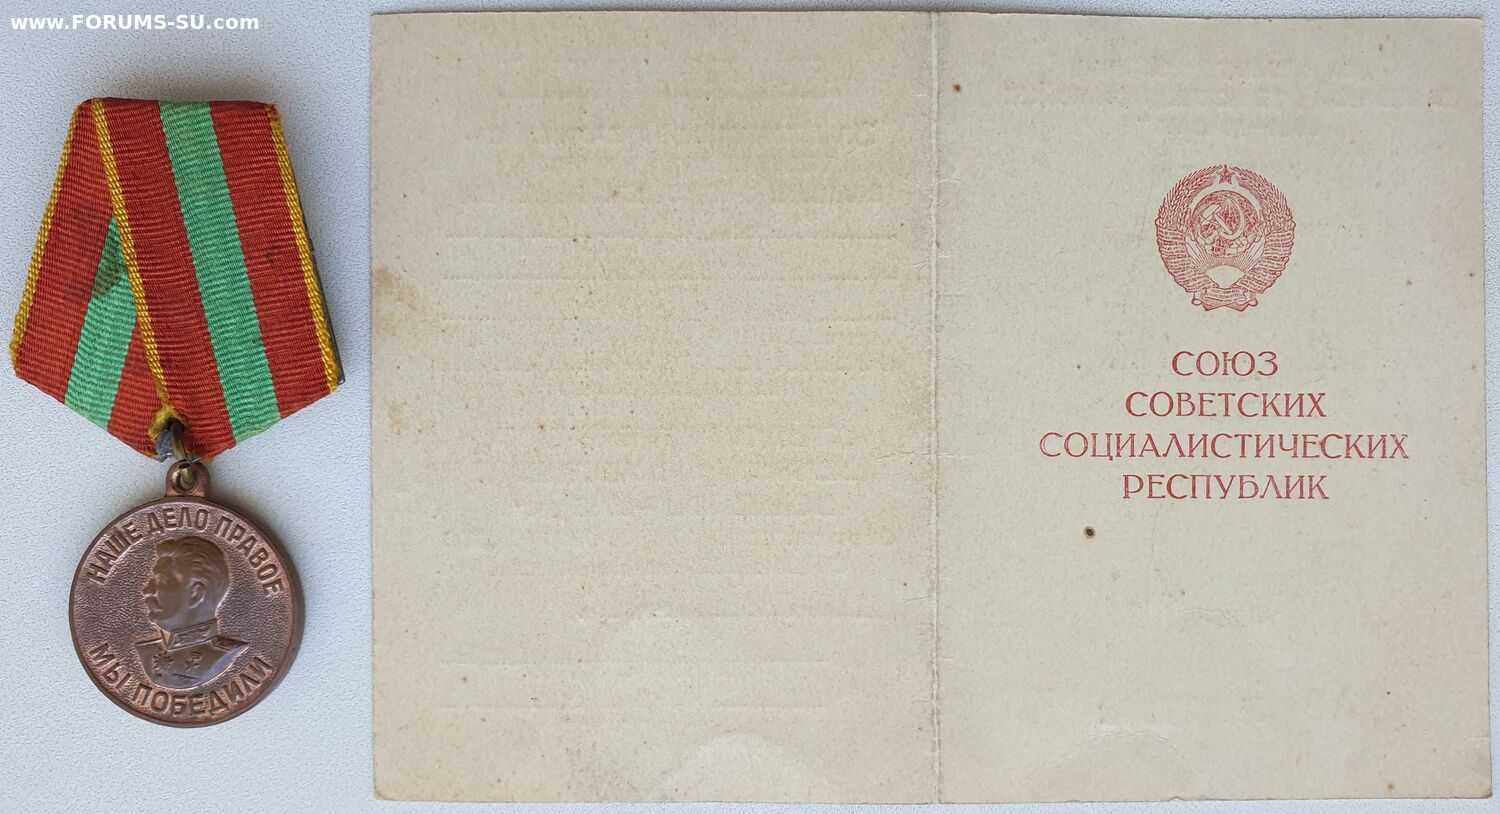 www.FORUMS-SU.com
НАШЕ ДЕЛО ПРАВОЕ
МЫ ПОБЕДИЛИ
СОЮЗ
СОВЕТСКИХ
СОЦИАЛИСТИЧЕСКИХ
РЕСПУБЛИК